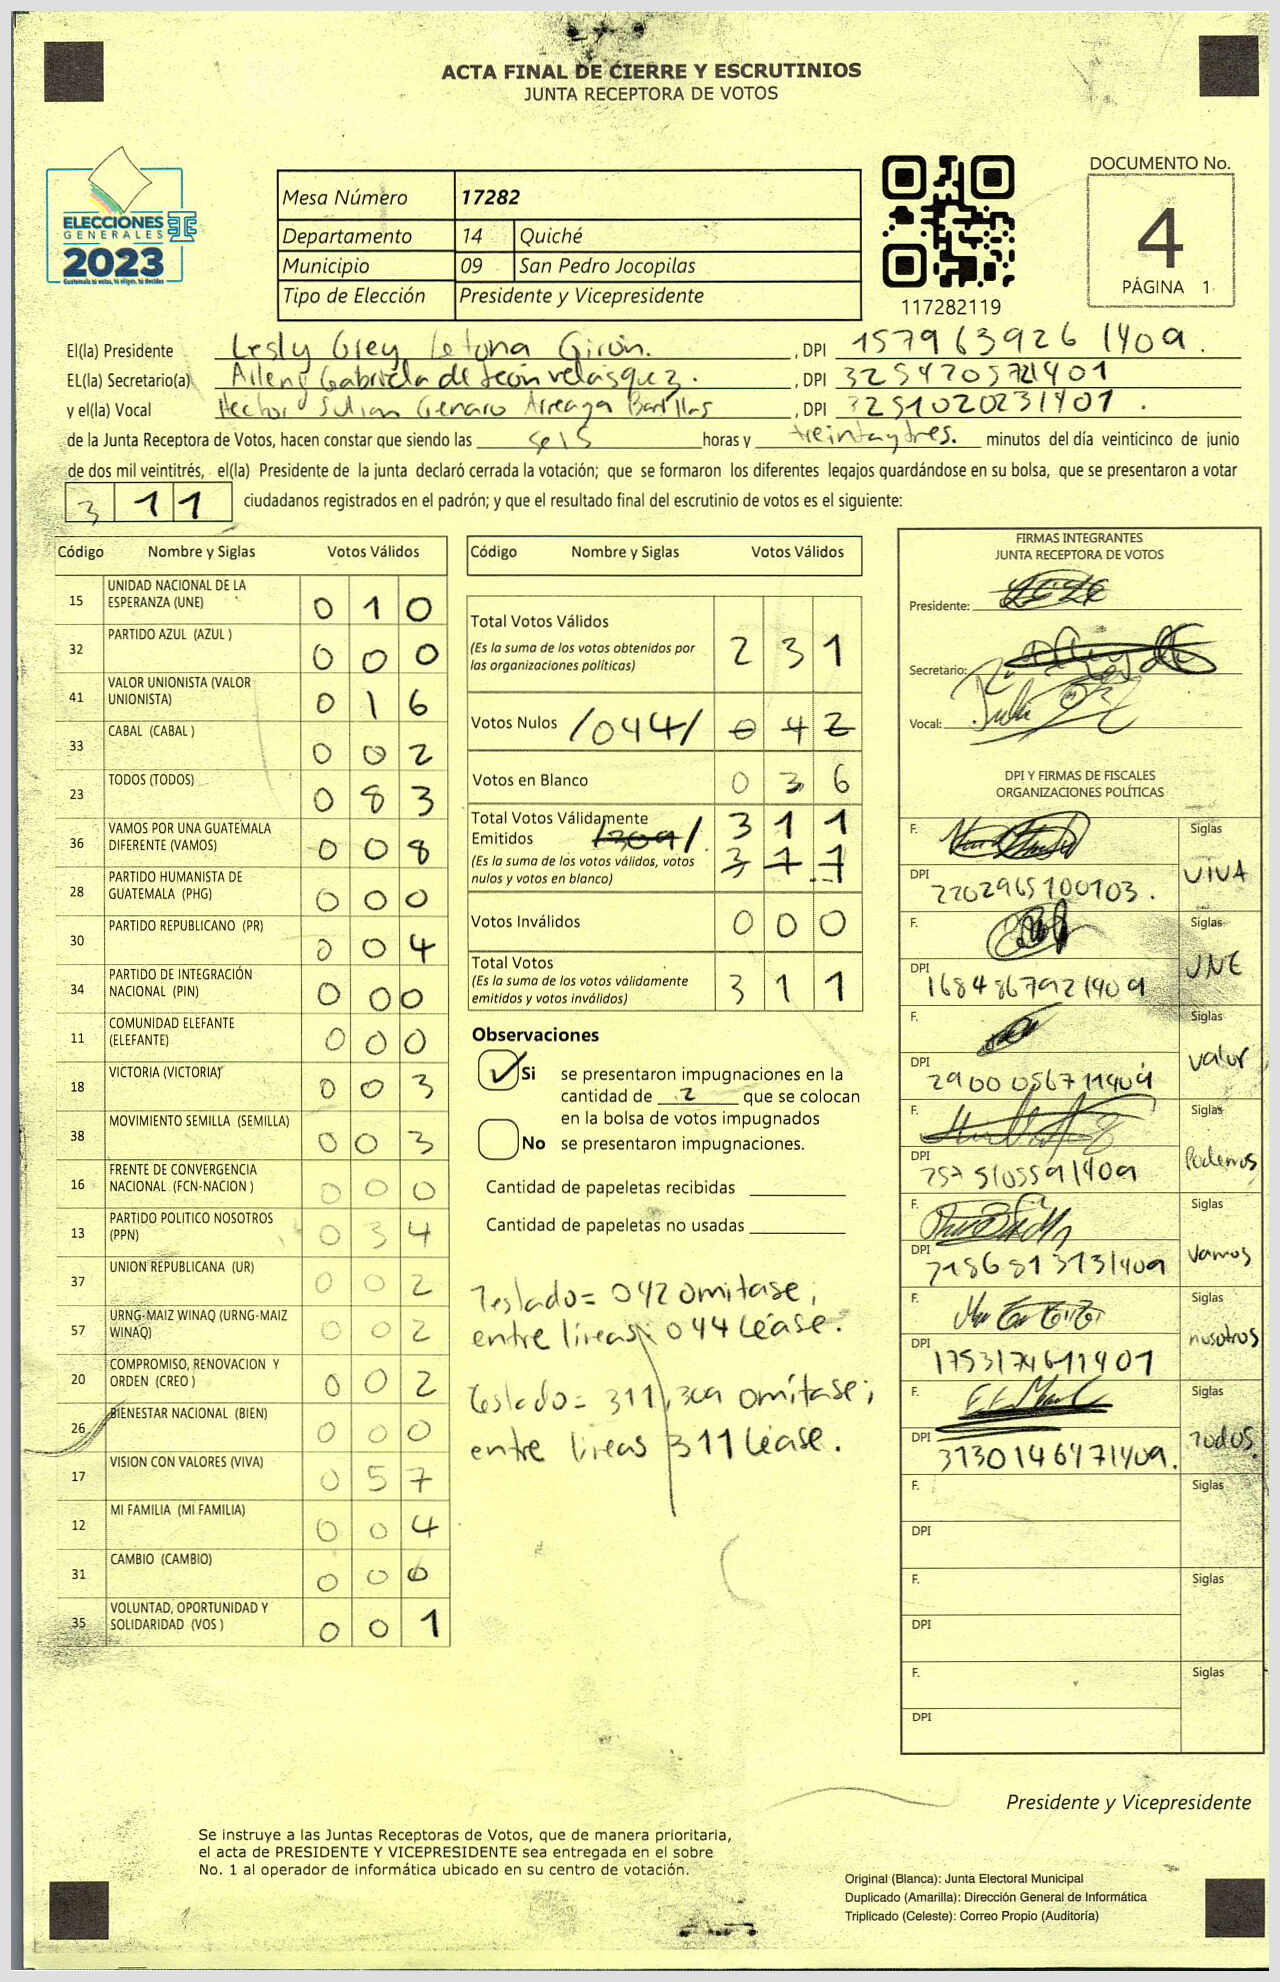 ACTA FINAL DE CIERRE Y ESCRUTINIOS
JUNTA RECEPTORA DE VOTOS
ELECCIONES
GENERALES
2023
Guatemala tú votas, tú eliges, tú decides
Mesa Número 17282
Departamento 14 Quiché
Municipio 09 San Pedro Jocopilas
Tipo de Elección Presidente y Vicepresidente
117282119
DOCUMENTO No.
4
PÁGINA 1
El(la) Presidente Lesly Grey Letona Girón. , DPI 157963926 1409.
EL(la) Secretario(a) Aileny Gabriela de León Velásquez. , DPI
y el(la) Vocal Hector Julian Genaro Arreaga Barillas , DPI 3251020231401.
de la Junta Receptora de Votos, hacen constar que siendo las seis horas y treinta y tres. minutos del día veinticinco de junio
de dos mil veintitrés, el(la) Presidente de la junta declaró cerrada la votación; que se formaron los diferentes legajos guardándose en su bolsa, que se presentaron a votar
3 1 1 ciudadanos registrados en el padrón; y que el resultado final del escrutinio de votos es el siguiente:
Código Nombre y Siglas Votos Válidos
15 UNIDAD NACIONAL DE LA ESPERANZA (UNE) 0 1 0
32 PARTIDO AZUL (AZUL ) 0 0 0
41 VALOR UNIONISTA (VALOR UNIONISTA) 0 1 6
33 CABAL (CABAL ) 0 0 2
23 TODOS (TODOS) 0 8 3
36 VAMOS POR UNA GUATEMALA DIFERENTE (VAMOS) 0 0 8
28 PARTIDO HUMANISTA DE GUATEMALA (PHG) 0 0 0
30 PARTIDO REPUBLICANO (PR) 0 0 4
34 PARTIDO DE INTEGRACIÓN NACIONAL (PIN) 0 0 0
11 COMUNIDAD ELEFANTE (ELEFANTE) 0 0 0
18 VICTORIA (VICTORIA) 0 0 3
38 MOVIMIENTO SEMILLA (SEMILLA) 0 0 3
16 FRENTE DE CONVERGENCIA NACIONAL (FCN-NACION ) 0 0 0
13 PARTIDO POLITICO NOSOTROS (PPN) 0 3 4
37 UNION REPUBLICANA (UR) 0 0 2
57 URNG-MAIZ WINAQ (URNG-MAIZ WINAQ) 0 0 2
20 COMPROMISO, RENOVACION Y ORDEN (CREO ) 0 0 2
26 BIENESTAR NACIONAL (BIEN) 0 0 0
17 VISION CON VALORES (VIVA) 0 5 7
12 MI FAMILIA (MI FAMILIA) 0 0 4
31 CAMBIO (CAMBIO) 0 0 0
35 VOLUNTAD, OPORTUNIDAD Y SOLIDARIDAD (VOS ) 0 0 1
Código Nombre y Siglas Votos Válidos
Total Votos Válidos 2 3 1
(Es la suma de los votos obtenidos por
las organizaciones políticas)
Votos Nulos /044/ 0 4 2
Votos en Blanco 0 3 6
Total Votos Válidamente 3 1 1
Emitidos /309/
(Es la suma de los votos válidos, votos 3 1 1
nulos y votos en blanco)
Votos Inválidos 0 0 0
Total Votos
(Es la suma de los votos válidamente 3 1 1
emitidos y votos inválidos)
Observaciones
Si se presentaron impugnaciones en la
cantidad de 2 que se colocan
en la bolsa de votos impugnados
No se presentaron impugnaciones.
Cantidad de papeletas recibidas
Cantidad de papeletas no usadas
Testado= 042 omitase;
entre lineas 044 Léase.
Testado= 311, 309 omítase;
entre líneas 311 Léase.
FIRMAS INTEGRANTES
JUNTA RECEPTORA DE VOTOS
Presidente:
Secretario:
Vocal:
DPI Y FIRMAS DE FISCALES
ORGANIZACIONES POLÍTICAS
F. Siglas
DPI 2202965100103. VIVA
F. Siglas
DPI 1684867921409 UNE
F. Siglas
DPI 2900056711409 valor
F. Siglas
DPI Podemos
F. Siglas
DPI Vamos
F. Siglas
DPI 1753174611401 nosotros
F. Siglas
DPI 3130146471409. Todos.
F. Siglas
DPI
F. Siglas
DPI
F. Siglas
DPI
Presidente y Vicepresidente
Se instruye a las Juntas Receptoras de Votos, que de manera prioritaria,
el acta de PRESIDENTE Y VICEPRESIDENTE sea entregada en el sobre
No. 1 al operador de informática ubicado en su centro de votación.
Original (Blanca): Junta Electoral Municipal
Duplicado (Amarilla): Dirección General de Informática
Triplicado (Celeste): Correo Propio (Auditoría)